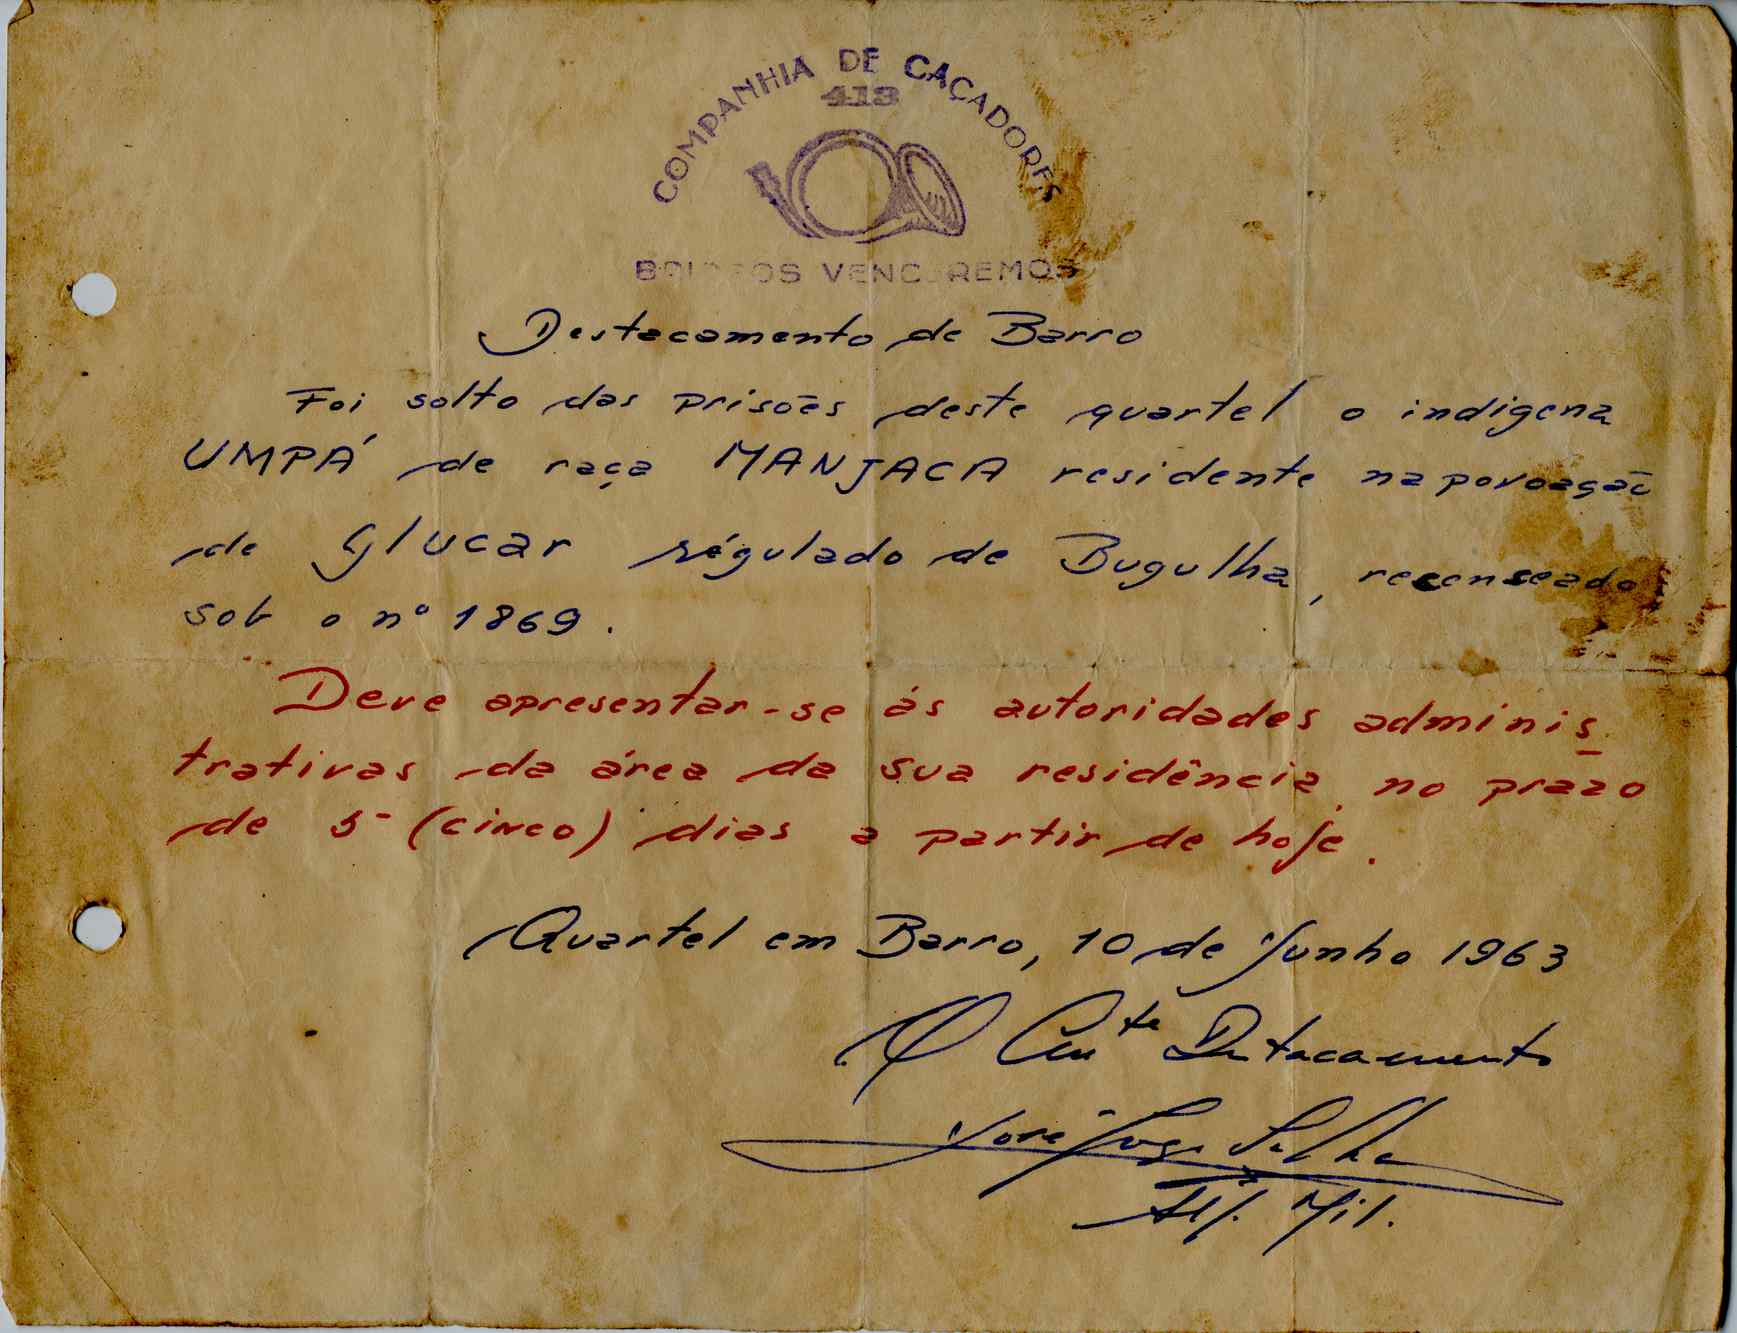 COMPANHIA DE CAÇADORES
413
VENCEREMOS
Destacamento de Barro
Foi solto das prisões deste quartel o indigena
UMPÁ de raça MANJACA residente na povoação
de Glucar régulado de Bugulha, recenseado
sob o nº 1869.
Deve apresentar-se ás autoridades adminis
trativas da área da sua residência, no prazo
de 5 (cinco) dias a partir de hoje.
Quartel em Barro, 10 de Junho 1963
O Cmte Destacamento
José
Alf. Mil.